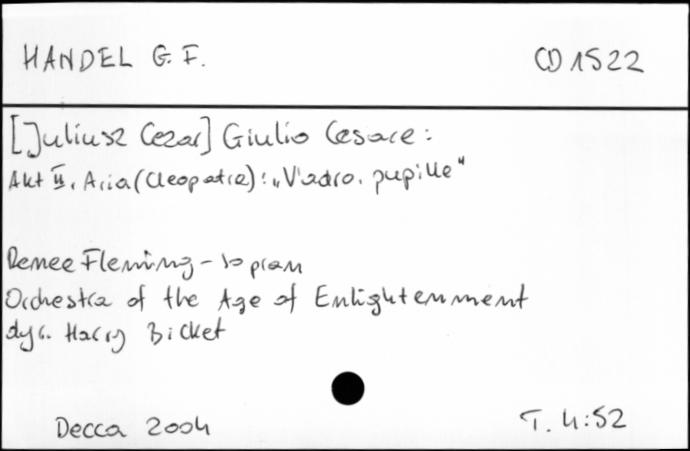 HANDEL G. F.
CD 1522
[Juliusz Cezar] Giulio Cesare:
Akt II, Aria (Cleopatra): „V'adro, pupille"
Renee Fleming - sopran
Orchestra of the Age of Enlightenment
dyr. Harry Bicket
Decca 2004
T. 4:52